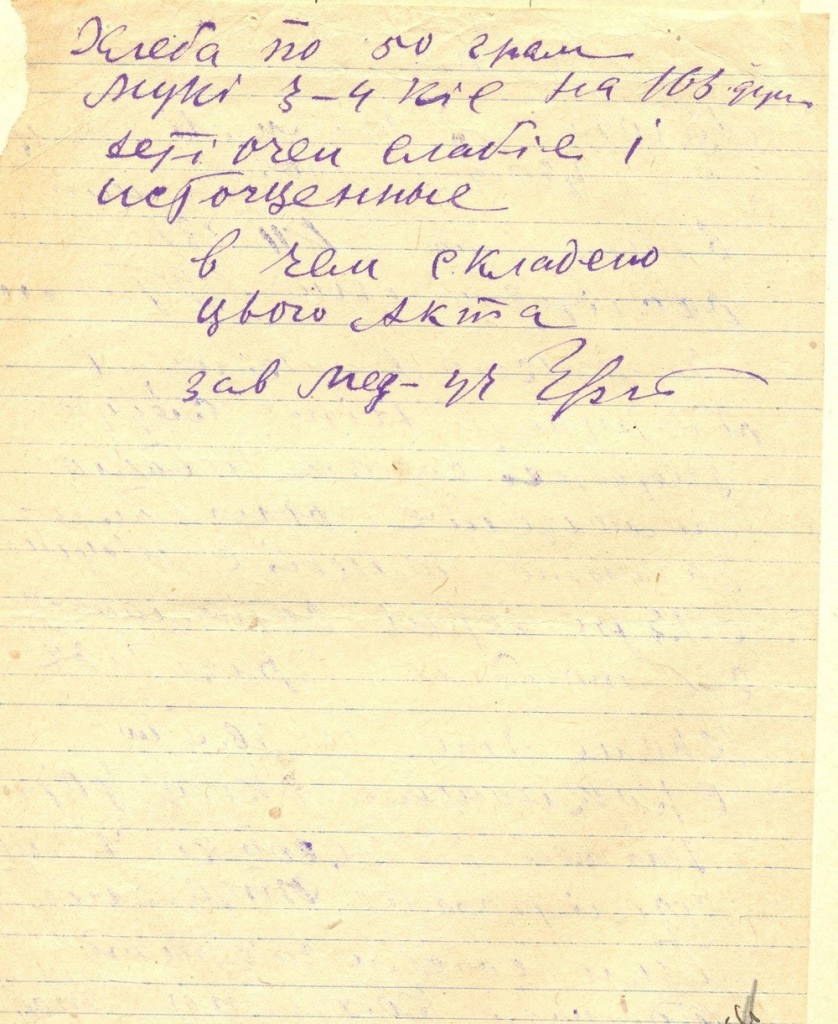 Хлеба по 50 грам
Мукі 3-4 кіе на 163 душ
деті очен слабіе і
источценные
в чем складено
цього Акта
зав мед-уч